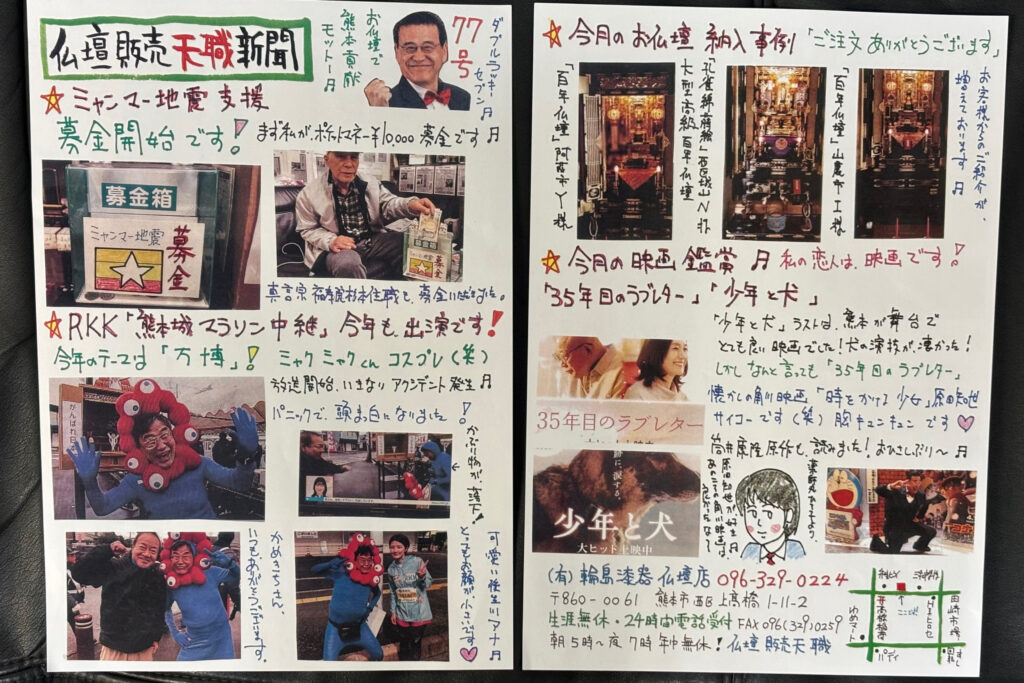 仏壇販売天職新聞
お仏壇で
熊本貢献
モットー♬
77号
ダブルラッキーセブン♬
☆ミャンマー地震支援
募金開始です!
まず私が、ポケットマネー¥10,000募金です♬
募金箱
ミャンマー地震
募金
☆RKK「熊本城マラソン中継」今年も出演です!
今年のテーマは「万博」!
ミャクミャクくん コスプレ(笑)
放送開始、いきなりアクシデント発生♬
パニックで、頭ま白になりました!
がんばれ日
かぶり物が落下!
かめきちさん、
いつもありがとうございます。
可愛い後生川アナ♬
とってもお顔が小さいです♡
☆今月のお仏壇 納入事例「ご注文ありがとうございます」
「百年仏壇」阿蘇市Y様
大型高級百年仏壇
「百年仏壇」山鹿市I様
お客様からのご紹介が、
増えております♬
☆今月の映画鑑賞♬ 私の恋人は、映画です!
「35年目のラブレター」「少年と犬」
「少年と犬」ラストは、熊本が舞台で
とても良い映画でした!犬の演技が、凄かった!
しかしなんと言っても「35年目のラブレター」
懐かしの角川映画「時をかける少女」原田知世
サイコーです(笑)胸キュンキュンです♡
筒井康隆原作も、読みました!おひさしぶり〜♬
35年目のラブレター
大ヒット上映中
少年と犬
大ヒット上映中
薬師丸ひろ子より、
原田知世が好き♬
(有)輪島漆器仏壇店 096-329-0224
〒860-0061 熊本市西区上高橋1-11-2
生涯無休・24時間電話受付 FAX 096(329)0259
朝5時〜夜7時 年中無休!仏壇販売天職
ここだよ!
田崎市場
ゆめマート
パティ